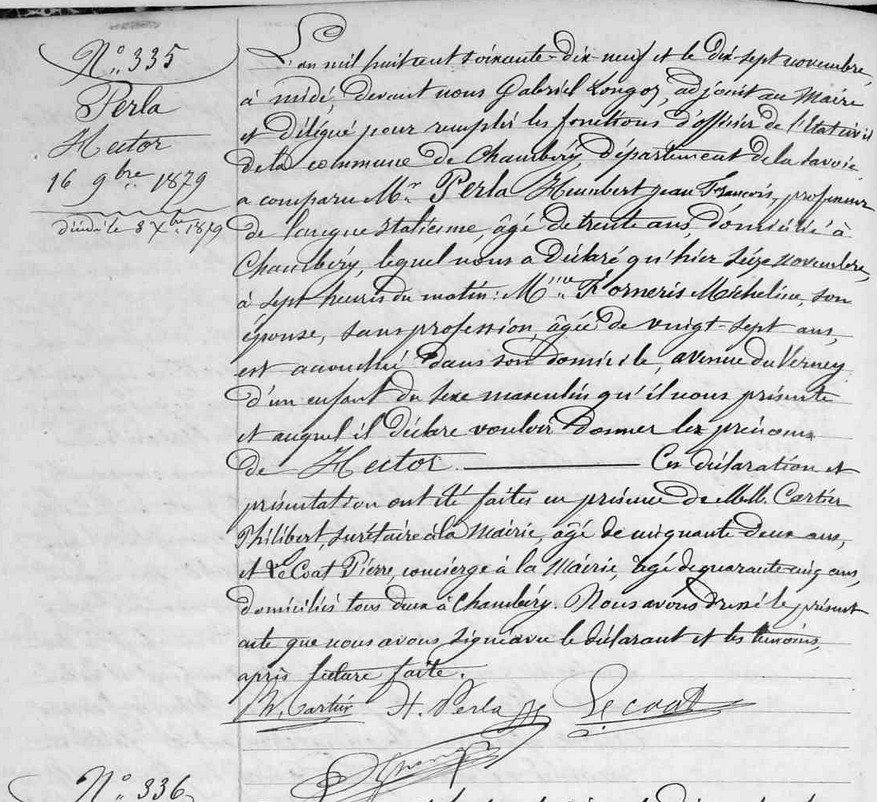 N° 335
Perla
Hector
16 9bre 1879
décédé le 8 Xbre 1879
L'an mil huit cent soixante-dix-neuf et le dix-sept novembre,
à midi, devant nous Gabriel Longoz, adjoint au Maire
et délégué pour remplir les fonctions d'officier de l'Etat civil
de la commune de Chambéry, département de la Savoie,
a comparu Mr Perla Humbert Jean François, professeur
de langue italienne, âgé de trente ans, domicilié à
Chambéry, lequel nous a déclaré qu'hier seize novembre,
à sept heures du matin: Mme Forneris Micheline, son
épouse, sans profession, âgée de vingt-sept ans,
est accouchée dans son domicile, avenue du Verney
d'un enfant du sexe masculin qu'il nous présente
et auquel il déclare vouloir donner les prénoms
de Hector. Ces déclaration et
présentation ont été faites en présence de MM. Cartier
Philibert, secrétaire à la Mairie, âgé de cinquante deux ans,
et Le Coat Pierre, concierge à la Mairie, âgé de quarante-cinq ans,
domiciliés tous deux à Chambéry. Nous avons dressé le présent
acte que nous avons signé avec le déclarant et les témoins,
après lecture faite.
Ph. Cartier H. Perla Le Coat
N° 336